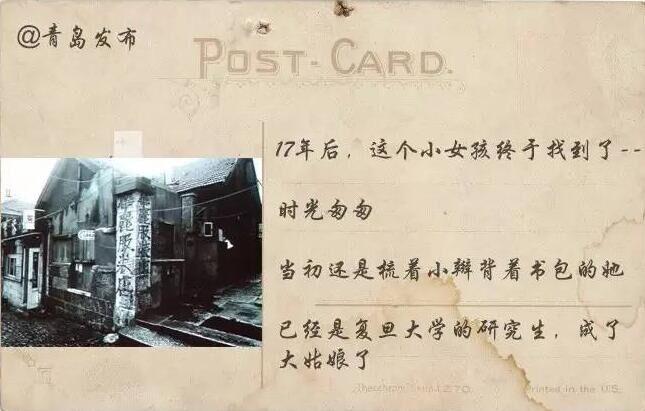 @青岛发布
POST-CARD.
17年后，这个小女孩终于找到了--
时光匆匆
当初还是梳着小辫背着书包的她
已经是复旦大学的研究生，成了
大姑娘了
Printed in the U.S.